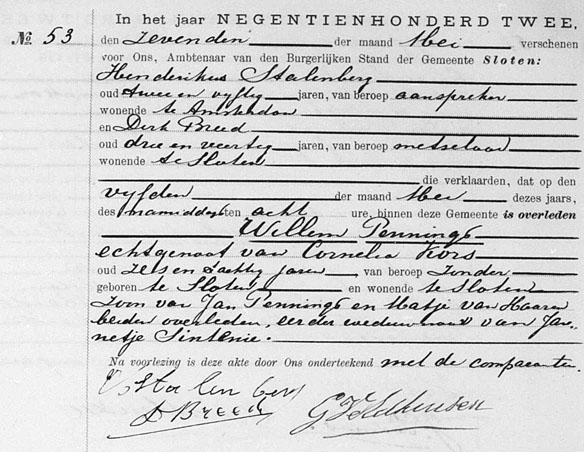 № 53
In het jaar NEGENTIENHONDERD TWEE,
den zevenden der maand Mei verschenen
voor Ons, Ambtenaar van den Burgerlijken Stand der Gemeente Sloten:
Henderikus Stalenberg
oud twee en vyftig jaren, van beroep aanspreker
wonende te Amsterdam
en Dirk Breed
oud drie en veertig jaren, van beroep metselaar
wonende te Sloten
die verklaarden, dat op den
vyfden der maand Mei dezes jaars,
des namiddags ten acht ure, binnen deze Gemeente is overleden
Willem Pennings
echtgenoot van Cornelia Kors
oud zes en tachtig jaren, van beroep zonder
geboren te Sloten en wonende te Sloten
Zoon van Jan Pennings en Matje van Haaren
beiden overleden, eerder weduwnaar van Jan-
netje Sintenie.
Na voorlezing is deze akte door Ons onderteekend met de comparanten.
Stalenberg
D Breed